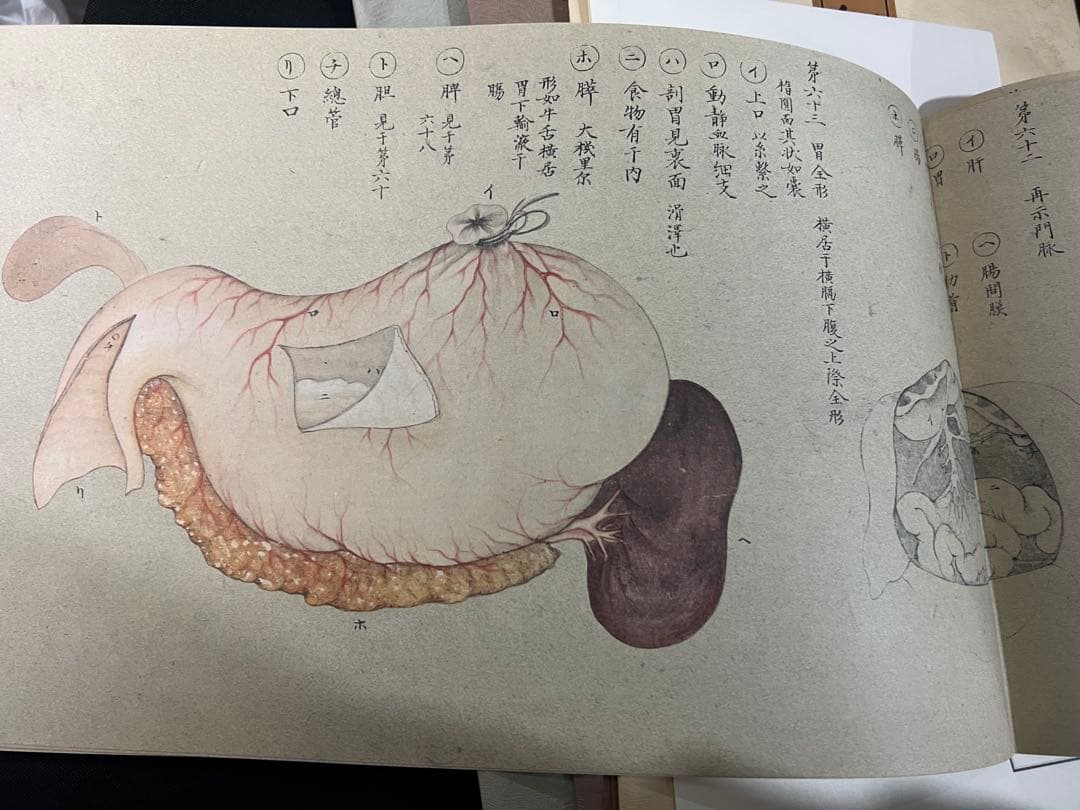 第六十二 再示門脉
㋑ 肝
㋺ 胃
㋬ 腸間膜
㋭ 膵
第六十三 胃全形 横居于横膈下腹之上際全形
楕圓而其状如嚢
㋑ 上口 以糸繋之
㋺ 動静血脉細支
㋩ 剖胃見裏面 滑澤也
㊁ 食物有于内
㋭ 膵 大機里尔
形如牛舌横居
胃下輸液于
腸
㋬ 脾 見于第
六十八
㋣ 胆 見于第六十
㋠ 總管
㋷ 下口
イ
ト
ロ
ロ
ハ
ニ
チ
リ
ホ
ヘ
イ
ニ